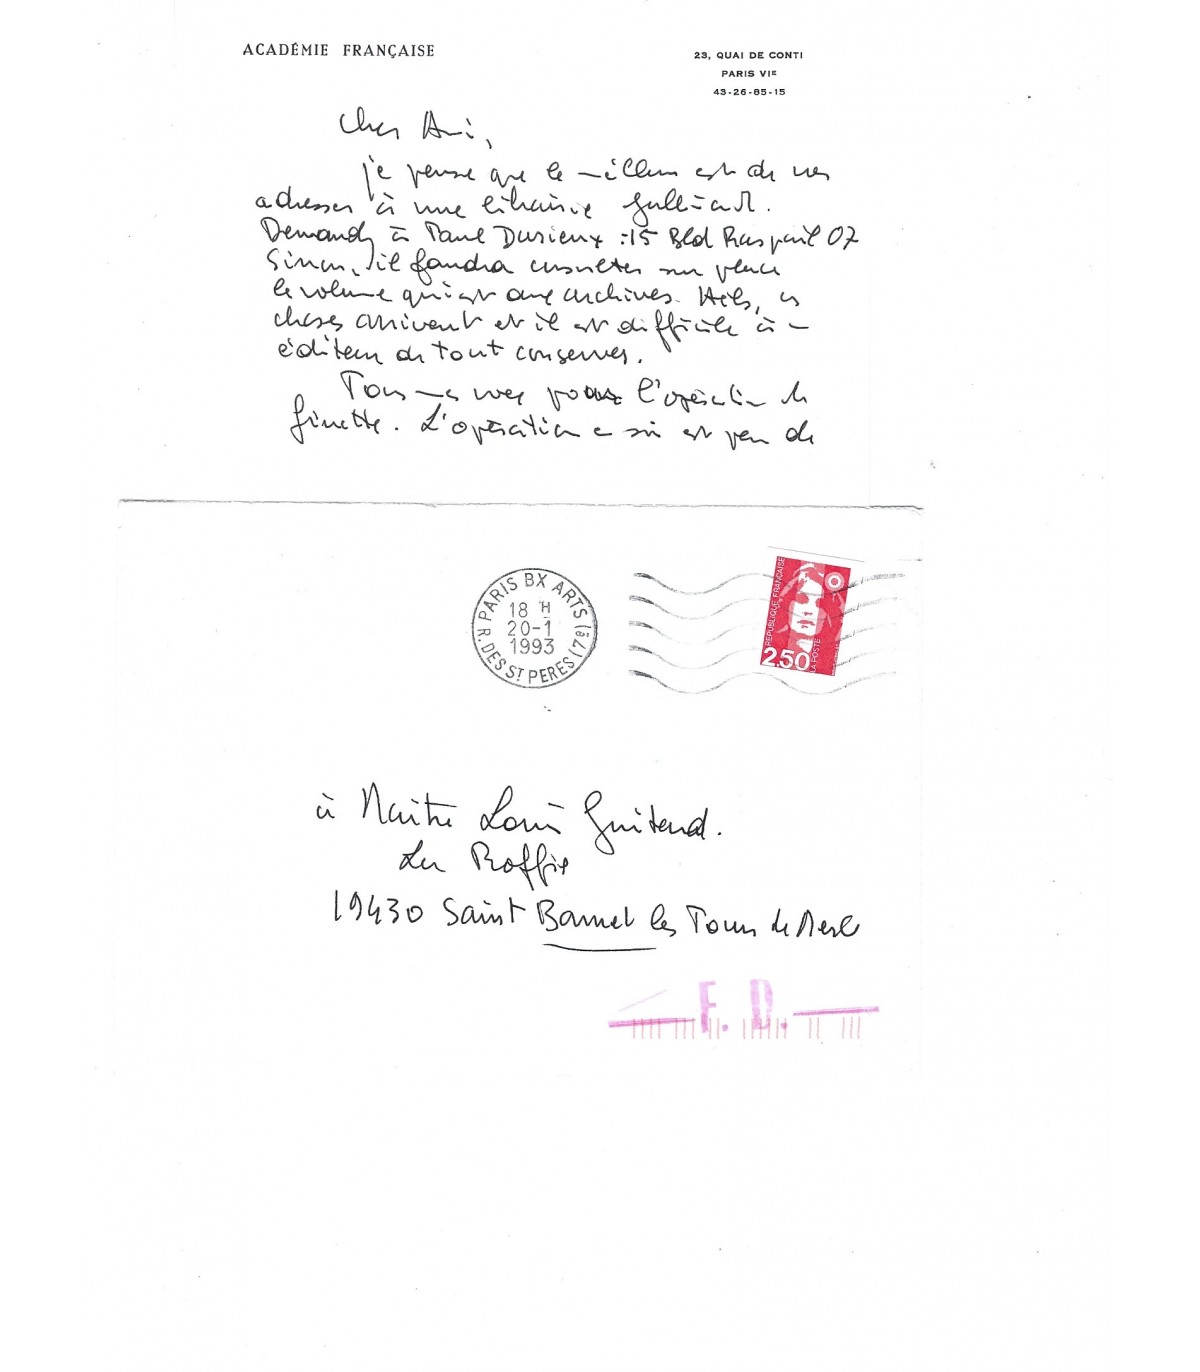 ACADÉMIE FRANÇAISE
23, QUAI DE CONTI
PARIS VIE
43-26-85-15
Cher Ami,
je pense que le meilleur est de vous
adresser à une librairie Gallimard.
Demandez à Paul Dusieux : 15 Bld Raspail 07
Sinon, il faudra consulter sur place
le volume qui est aux archives. Hélas, ces
choses arrivent et il est difficile à un
éditeur de tout conserver.
Tous mes vœux pour l'opération de
Ginette. L'opération en soi est peu de
PARIS BX ARTS (7e)
R. DES ST PERES
18 H
20-1
1993
RÉPUBLIQUE FRANÇAISE
2,50
LA POSTE
à Maître Louis Guitard.
La Roffie
19430 Saint Bonnet les Tours de Merle
F. D.